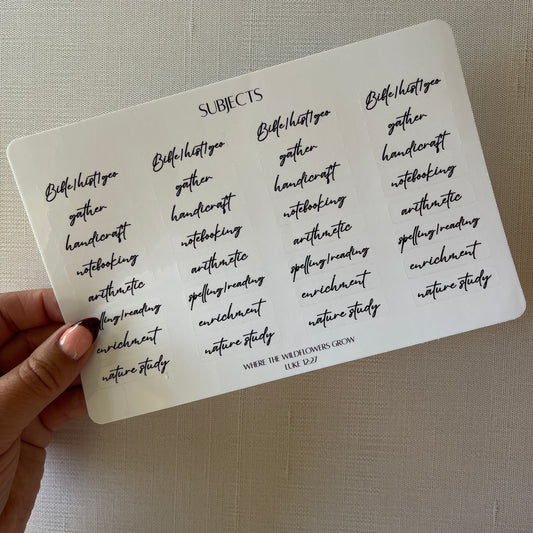 SUBJECTS
Bible/hist/geo Bible/hist/geo Bible/hist/geo Bible/hist/geo
gather gather gather gather
handicraft handicraft handicraft handicraft
notebooking notebooking notebooking notebooking
arithmetic arithmetic arithmetic arithmetic
spelling/reading spelling/reading spelling/reading spelling/reading
enrichment enrichment enrichment enrichment
nature study nature study nature study nature study
WHERE THE WILDFLOWERS GROW
LUKE 12:27